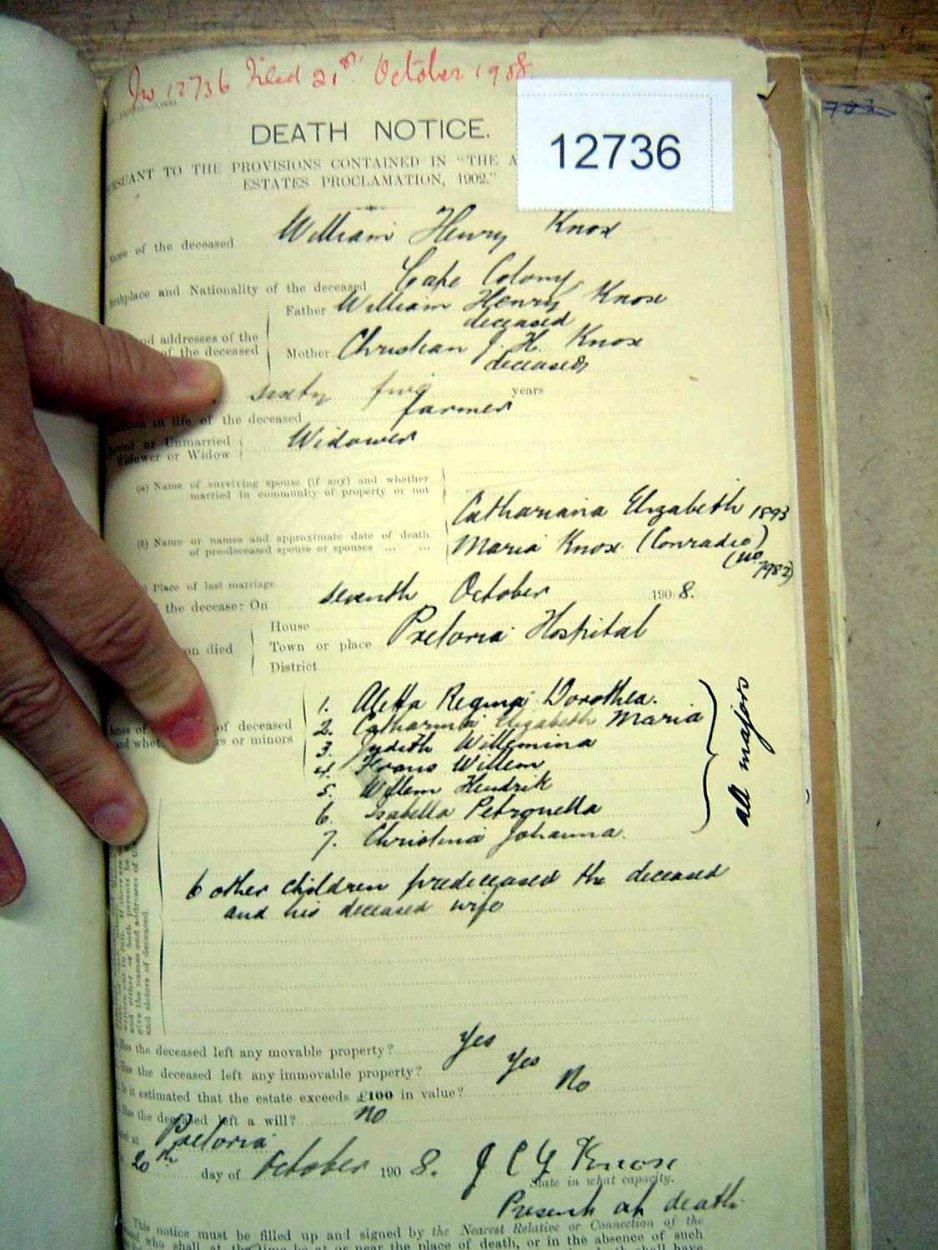 12736 Filed 21st October 1908.
12736
DEATH NOTICE.
PURSUANT TO THE PROVISIONS CONTAINED IN "THE A
ESTATES PROCLAMATION, 1902."
of the deceased William Henry Knox
Birthplace and Nationality of the deceased Cape Colony
Father William Henry Knox
deceased
addresses of the
of the deceased
Mother Christian J. H. Knox
deceased
sixty five years
in life of the deceased farmer
or Unmarried
Widower or Widow
Widower
(a) Name of surviving spouse (if any) and whether
married in community of property or not
(b) Name or names and approximate date of death
of pre-deceased spouse or spouses ... ...
Catharina Elizabeth 1893
Maria Knox (Conradie)
(no 7982)
Place of last marriage
the decease: On seventh October 1908.
House
on died Town or place Pretoria Hospital
District
of deceased
or minors
1. Aletta Regina Dorothea.
2. Catharina Elizabeth Maria
3. Judith Willemina
4. Frans Willem
5. Willem Hendrik
6. Isabella Petronella
7. Christina Johanna.
all majors
6 other children predeceased the deceased
and his deceased wife
give the names and addresses of the
and sisters of deceased.
Has the deceased left any movable property? Yes
Has the deceased left any immovable property? Yes
Is it estimated that the estate exceeds £100 in value? No
Has the deceased left a will? no
at Pretoria
20th day of October 1908. J C G Knox
State in what capacity.
Present at death.
This notice must be filled up and signed by the Nearest Relative or Connection of the
who shall at the time be at or near the place of death, or in the absence of such